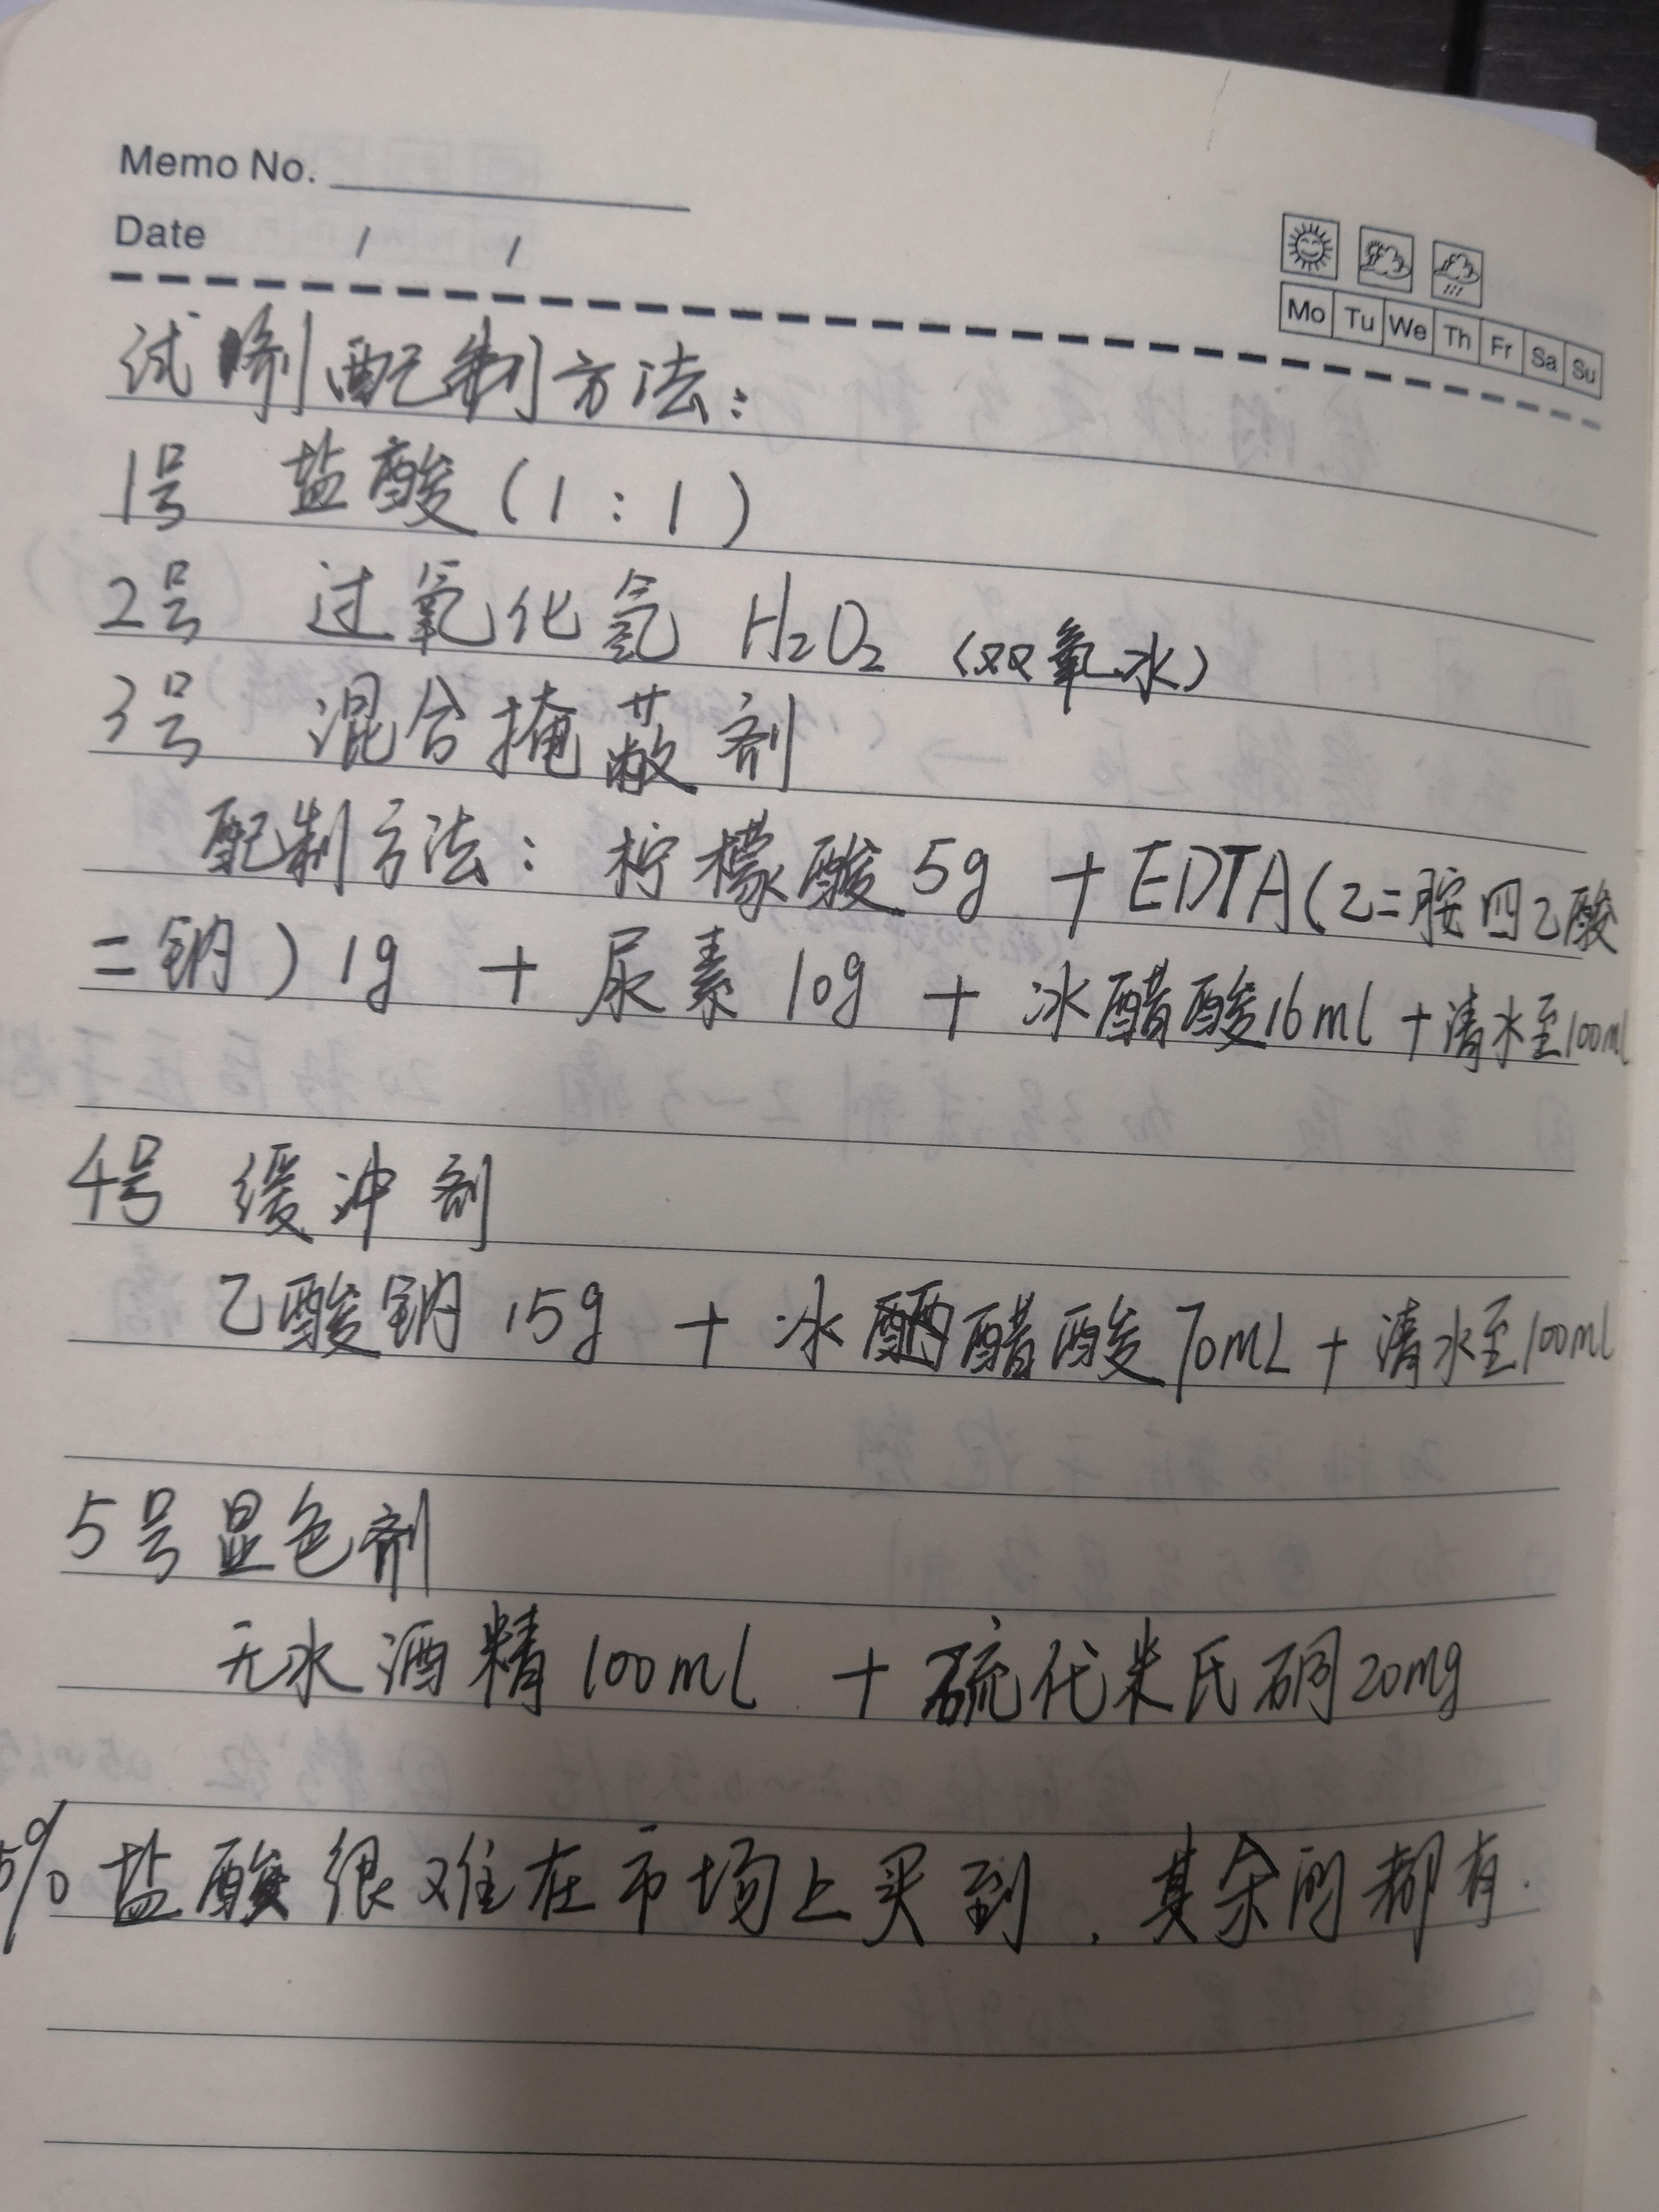 Memo No.
Date / /
Mo Tu We Th Fr Sa Su
试剂配制方法:
1号 盐酸(1:1)
2号 过氧化氢 H₂O₂ (双氧水)
3号 混合掩蔽剂
配制方法: 柠檬酸5g + EDTA(乙二胺四乙酸
二钠)1g + 尿素10g + 冰醋酸16ml + 清水至100ml
4号 缓冲剂
乙酸钠15g + 冰醋酸70mL + 清水至100ml
5号显色剂
无水酒精100ml + 硫代米氏酮20mg
5%盐酸很难在市场上买到,其余的都有.